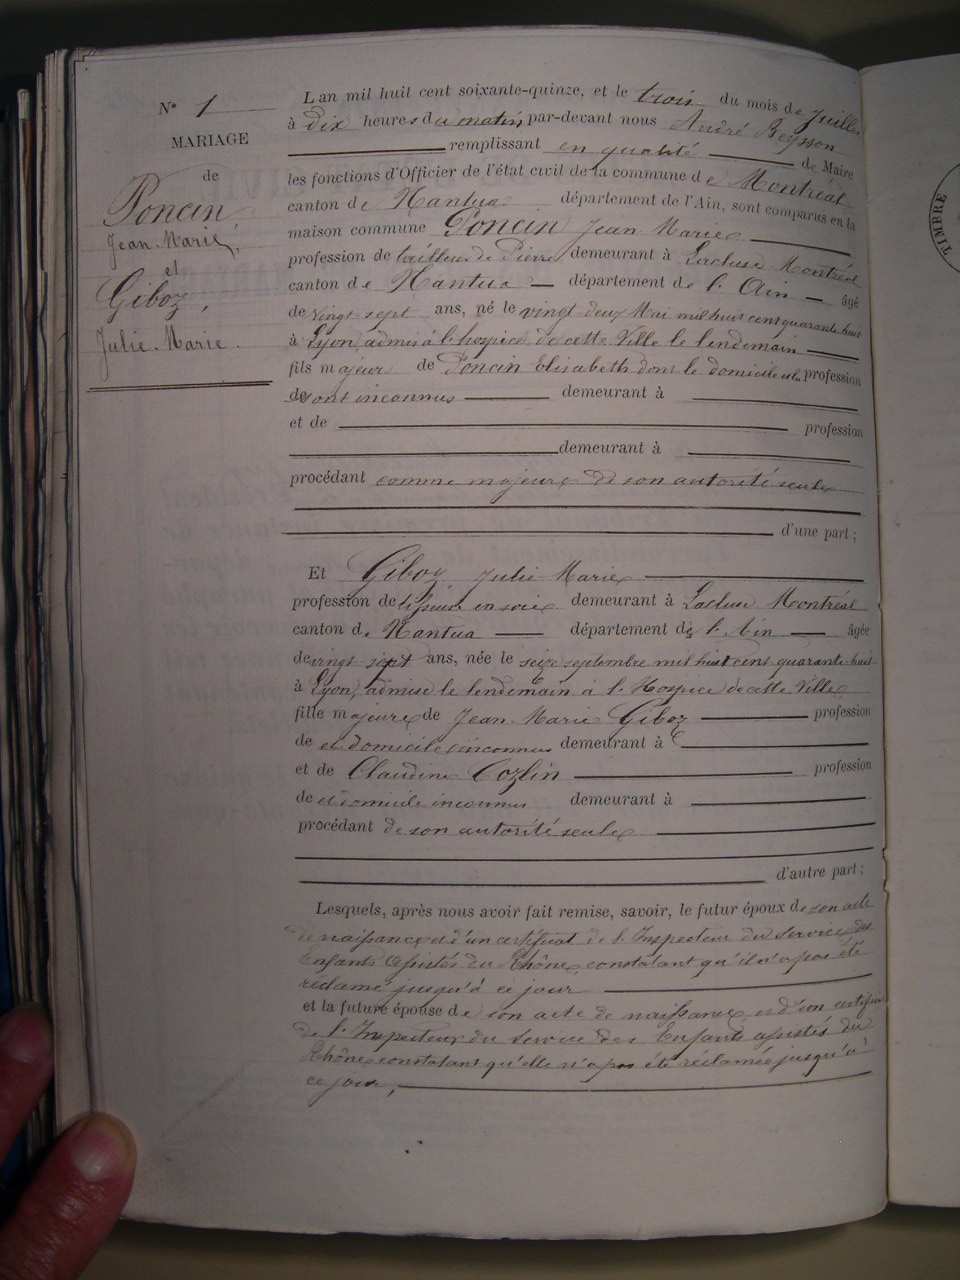 N° 1
MARIAGE
de
Poncin
Jean-Marie,
et
Giboz,
Julie-Marie.
L'an mil huit cent soixante-quinze, et le trois du mois de Juillet
à dix heures du matin, par-devant nous André Beysson
remplissant en qualité de Maire
les fonctions d'Officier de l'état civil de la commune de Montréal
canton de Nantua département de l'Ain, sont comparus en la
maison commune Poncin Jean Marie
profession de tailleur de Pierre demeurant à Lacluse Montréal
canton de Nantua département de l'Ain âgé
de vingt sept ans, né le vingt deux Mai mil huit cent quarante-huit
à Lyon, admis à l'hospice de cette Ville le lendemain
fils majeur de Poncin Elisabeth dont le domicile et la profession
de sont inconnus demeurant à
et de profession
demeurant à
procédant comme majeur de son autorité seule
d'une part ;
Et Giboz Julie Marie
profession de tisseuse en soie demeurant à Lacluse Montréal
canton de Nantua département de l'Ain âgée
de vingt sept ans, née le seize septembre mil huit cent quarante-huit
à Lyon, admise le lendemain à l'Hospice de cette Ville
fille majeure de Jean Marie Giboz profession
de et domicile inconnus demeurant à
et de Claudine Cozlin profession
de et domicile inconnus demeurant à
procédant de son autorité seule
d'autre part ;
Lesquels, après nous avoir fait remise, savoir, le futur époux de son acte
de naissance et d'un certificat de l'Inspecteur du Service des
Enfants Assistés du Rhône, constatant qu'il n'a pas été
réclamé jusqu'à ce jour
et la future épouse de son acte de naissance et d'un certificat
de l'Inspecteur du Service des Enfants assistés du
Rhône constatant qu'elle n'a pas été réclamée jusqu'à
ce jour,
TIMBRE